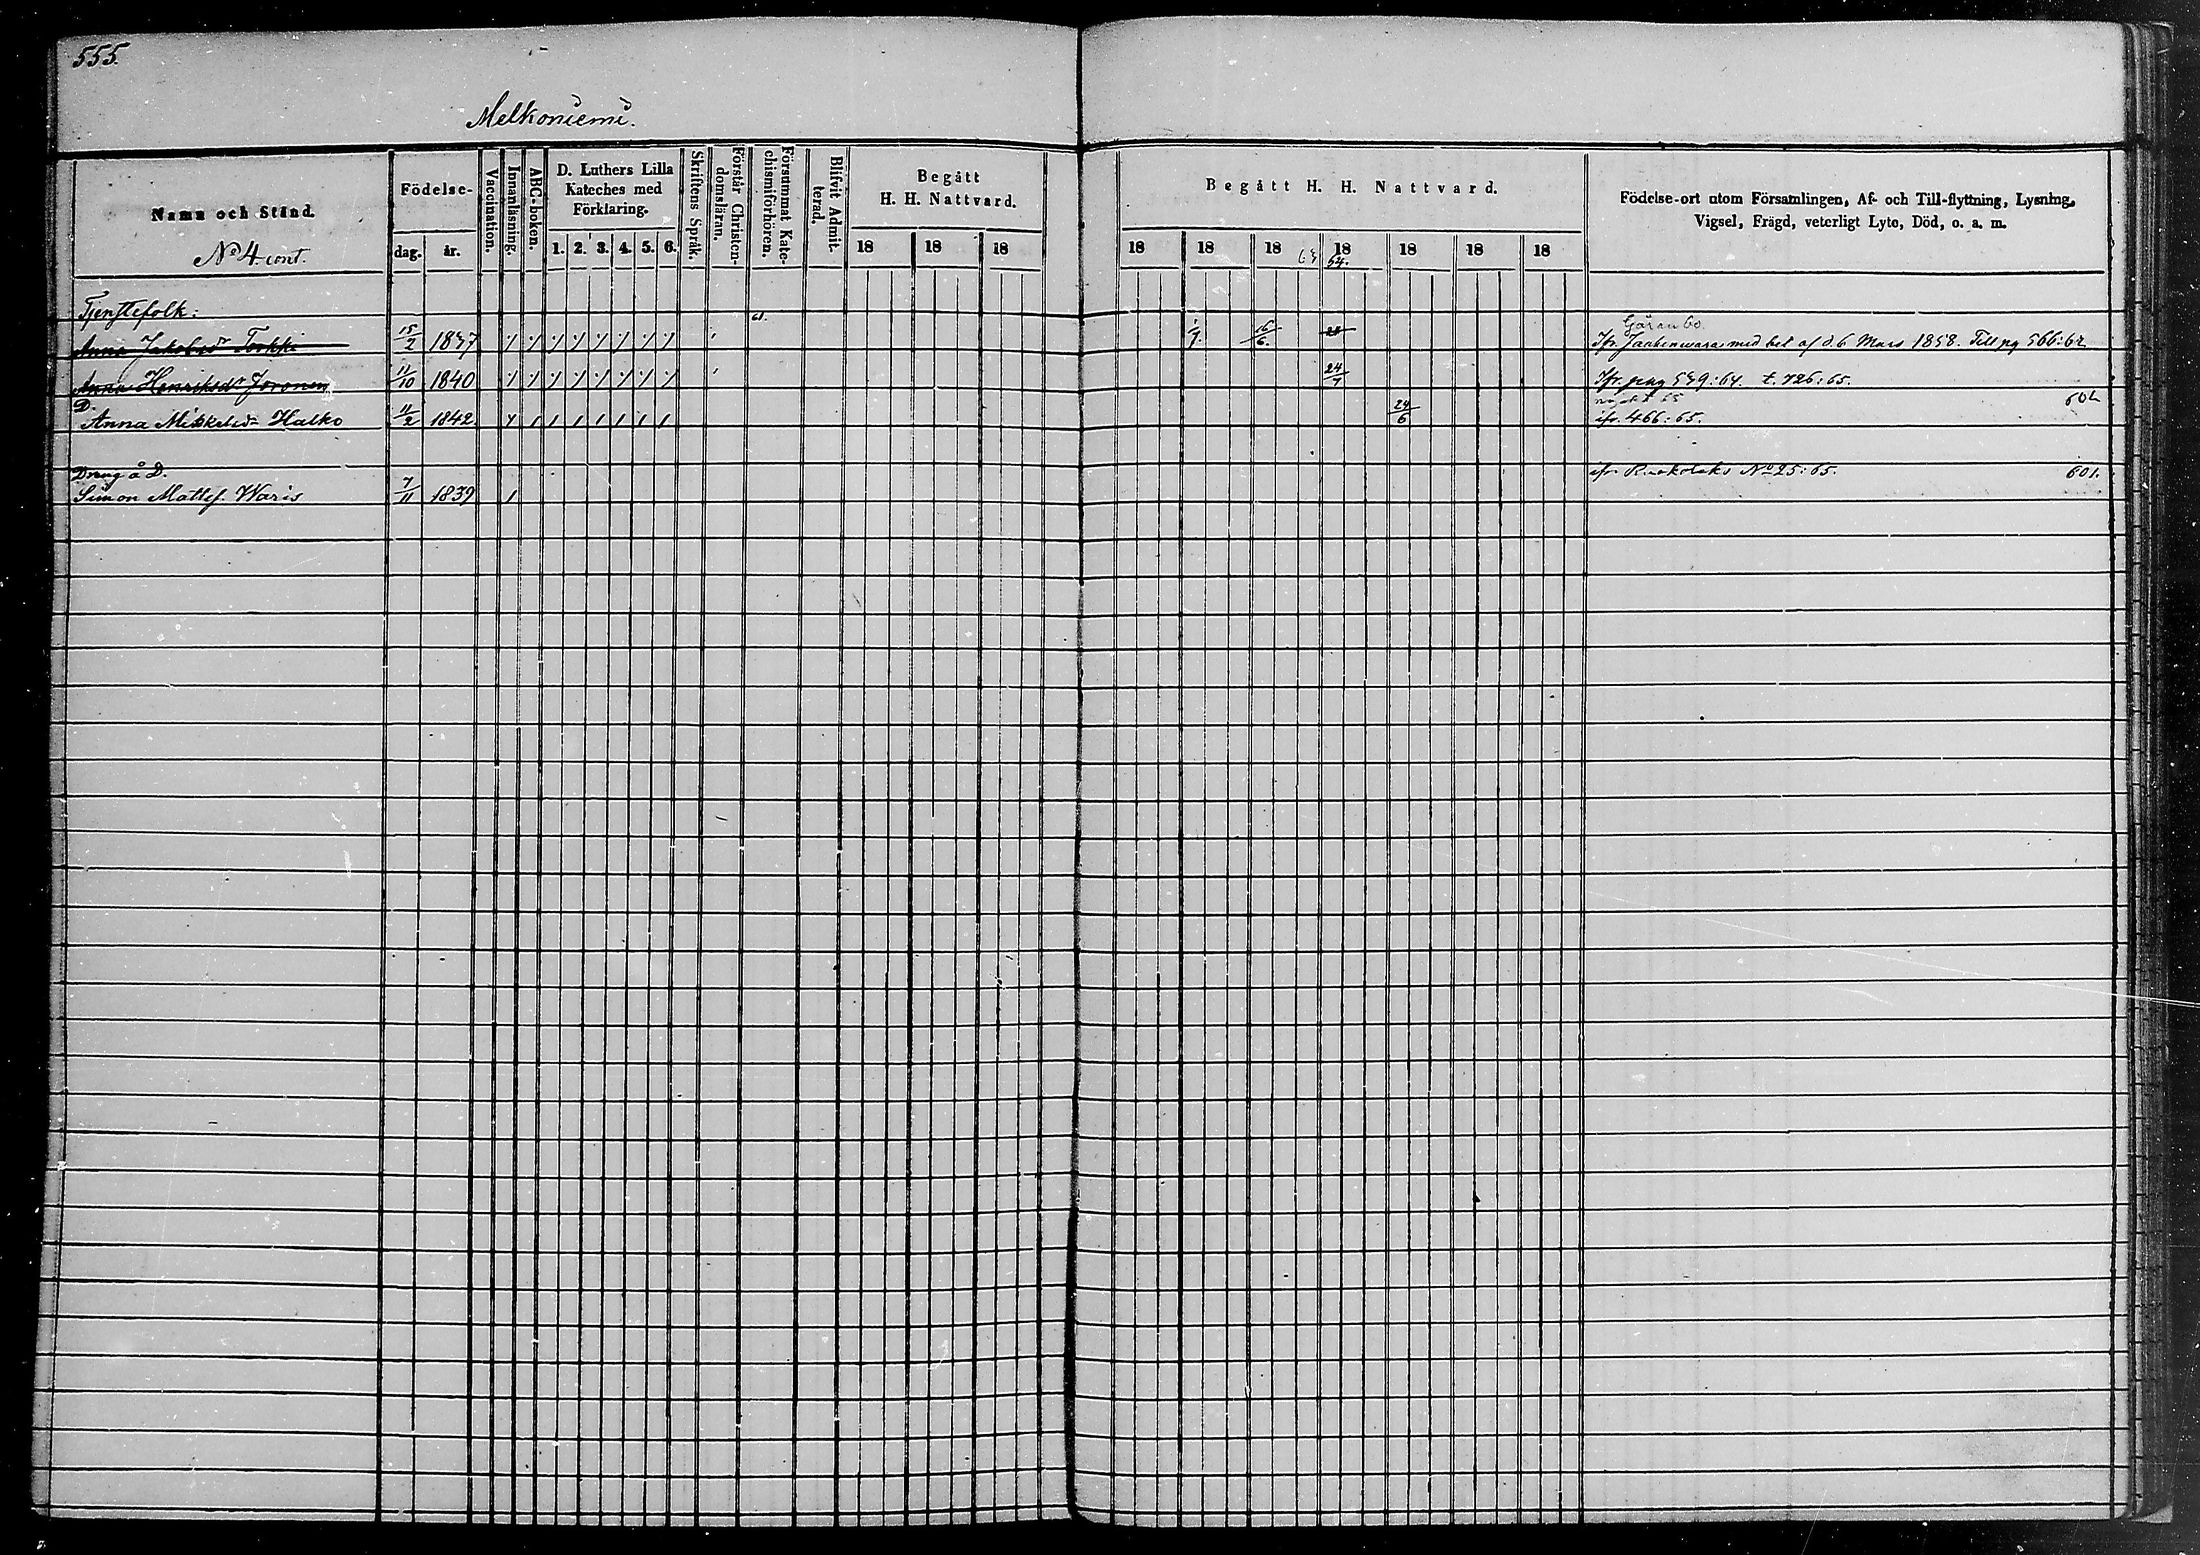 555.
Melkoniemi.
Namn och Stånd.
No 4. cont.
Födelse-
dag. år.
Vaccination.
Innanläsning.
ABC-boken.
D. Luthers Lilla
Kateches med
Förklaring.
1. 2. 3. 4. 5. 6.
Skriftens Språk.
Förstår Christen-
domsläran.
Försummat Kate-
chismiförhören.
Blifvit Admit-
terad.
Begått
H. H. Nattvard.
18 18 18
Begått H. H. Nattvard.
18 18 18 63 18 64. 18 18 18
Födelse-ort utom Församlingen, Af- och Till-flyttning, Lysning,
Vigsel, Frägd, veterligt Lyte, Död, o. a. m.
Tjenstefolk:
61.
Anna Jakobsdr Torkki 15/2 1837 1/7. 16/6.
Ifr. med bet af d. 6 Mars 1858. Till pg 566:62
Anna Henriksdr Joronen 11/10 1840 24/7
Ifr. pag 539:64. t. 726:65.
D.
Anna Mikkelsdr Halko 11/2 1842 24/6
ifr. 466:65.
602
Dreng å D.
ifr. No 25:65. 601.
Simon Mattsf. Waris 7/11 1839